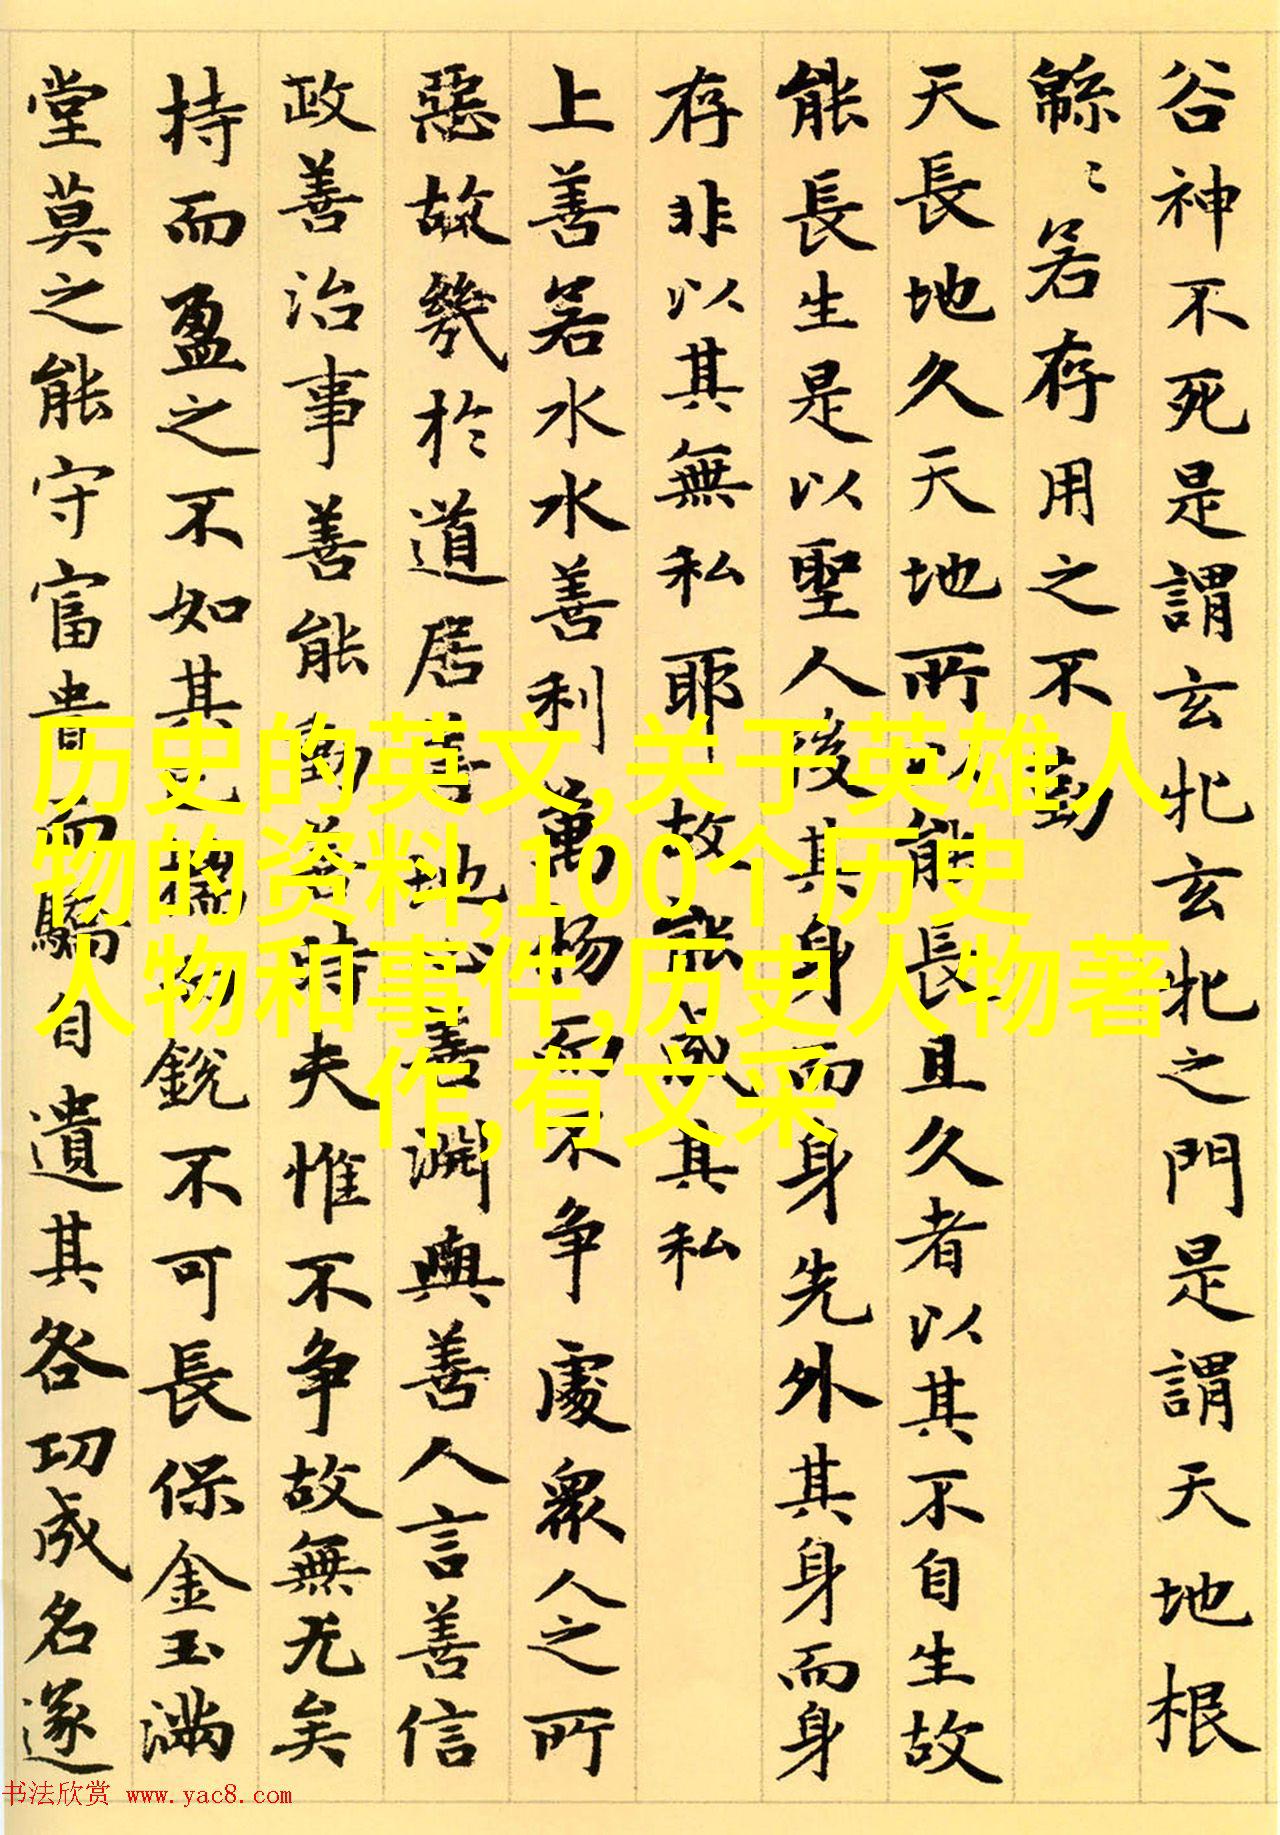 谷神不死是謂玄牝玄牝之門是謂天地根
緜〻若存用之不勤
天長地久天地所以能長且久者以其不自生故
能長生是以聖人後其身而身先外其身而身
存非以其無私耶故能成其私
上善若水水善利萬物而不争處衆人之所
惡故幾於道居善地心善淵與善人言善信
政善治事善能動善時夫惟不争故無尤矣
持而盈之不如其已揣而銳不可長保金玉滿
堂莫之能守富貴而驕自遺其咎功成名遂
历史的英文,关于英雄人
物的资料,100个历史
人物和事件,历史人物著
作,有文采
书法欣赏 www.yac8.com